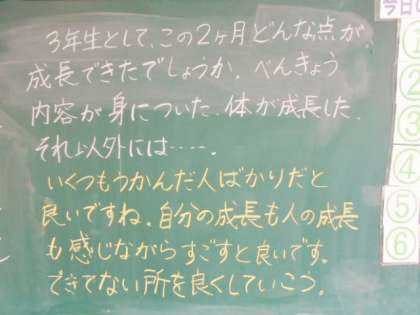 3年生として、この2ヶ月どんな点が、
成長できたでしょうか。べんきょう
内容が身についた、体が成長した、
それ以外には‥‥。
いくつもうかんだ人ばかりだと
良いですね。自分の成長も人の成長
も感じながらすごすと良いです。
できてない所を良くしていこう。
今日の
①
②
③
④
⑤
⑥